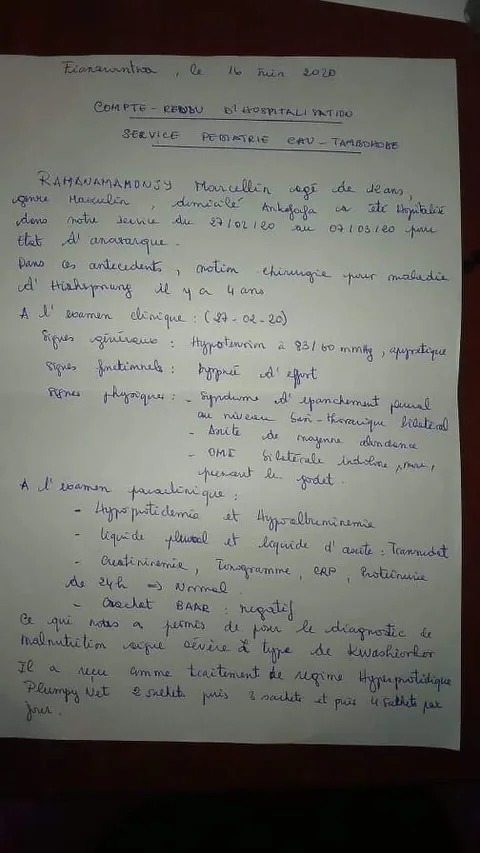 Fianarantsoa, le 16 Juin 2020
COMPTE-RENDU D'HOSPITALISATION
SERVICE PEDIATRIE CHU-TAMBOHOBE
RAMANAMAMONJY Marcellin agé de 12 ans,
genre Masculin, domicilé Ankofafa a été Hospitalisé
dans notre service du 27/02/20 au 07/03/20 pour
Etat d'anasarque.
Dans ces antecedents, notion chirurgie pour maladie
d'Hishsprung il y a 4 ans
A l'examen clinique : (27-02-20)
Signes généraux : Hypotension à 83/60 mmHg, apyretique
Signes fonctionnels : Dyspneé d'effort
Signes physiques : - Syndrome d'epanchement pleural
au niveau basi-thoracique bilateral
- Ascite de moyenne abondance
- OMI bilatérale indolore, mou,
prenant le godet.
A l'examen paraclinique :
- Hypoprotidemie et Hypoalbuminemie
- liquide pleural et liquide d'ascite : Transudat
- Creatininemie, Ionogramme, CRP, Proteinurie
de 24h => Normal.
- Crachat BAAR : negatif
Ce qui nous a permis de poser le diagnostic de
malnutrition aigue sévère à type de Kwashiorkor
Il a reçu comme traitement de regime Hyperprotidique
Plumpy Net 2 sachets puis 3 sachets et puis 4 sachets par
jour.